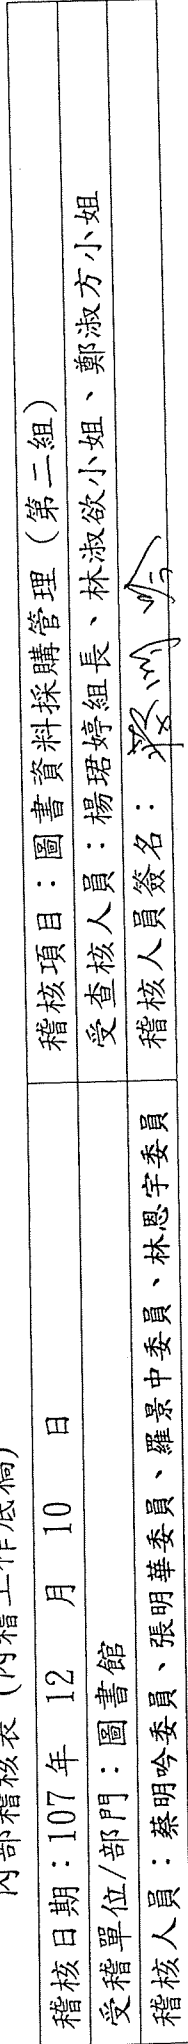 內部稽核表（內稽工作底稿）
稽核日期：107 年 12 月 10 日
稽核項目：圖書資料採購管理（第二組）
受稽單位/部門：圖書館
受查核人員：楊珺婷組長、林淑欲小姐、鄭淑方小姐
稽核人員：蔡明吟委員、張明華委員、羅景中委員、林恩宇委員
稽核人員簽名：蔡明吟